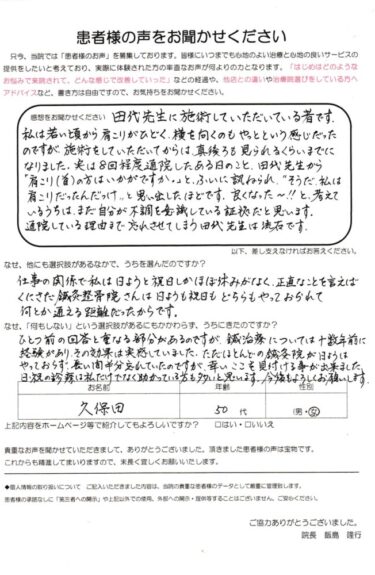 患者様の声をお聞かせください
只今、当院では「患者様のお声」を募集しております。皆様にいつまでも心地のよい治療と心地の良いサービスの
提供をしたいと考えており、実際に体験された方の率直なお声が何よりの力となります。「はじめはどのような
お悩みで来院されて、どんな感じで改善していった」などの経過や、他店との違いや治療院選びをしている方へ
アドバイスなど、書き方は自由ですので、お気持ちをお聞かせください。
感想をお聞かせください 田代先生に施術していただいている者です。
私は若い頃から肩こりがひどく、横を向くのもやっとという感じだった
のですが、施術をしていただいてからは、真後ろも見られるくらいまでに
なりました。実は8回程度通院したある日のこと、田代先生から
「肩こり(首)の方はいかがですか。」と、ふいに訊ねられ、"そうだ、私は
肩こりだったんだっけ。"と思い出したほどです。良くなった〜!!と考えて
いるうちは、まだ自分が不調を意識している証拠だと思います。
通院している理由まで忘れさせてしまう田代先生は流石です。
以下、差し支えなければお答えください。
なぜ、他にも選択肢があるなかで、うちを選んだのですか?
仕事の関係で私は日ようと祝日しかほぼ休みがなく、正直なことを言えば
くにさだ鍼灸整骨院さんは日ようも祝日もどちらもやっておられて
何とか通える距離だったからです。
なぜ、「何もしない」という選択肢があるにもかかわらず、うちにきたのですか?
ひとつ前の回答と重なる部分があるのですが、鍼治療については十数年前に
経験があり、その効果は実感していました。ただほとんどの鍼灸院が日ようは
やっておらず、長い間半分忘れていたのですが、幸い、ここを見付ける事が出来ました。
日・祝の診療は私だけでなく助かっている方も多いと思います。今後もよろしくお願いします。
お名前 年齢 性別
久保田 50代 (男・女)
上記内容をホームページ等で紹介してもよろしいですか? □はい・□いいえ
貴重なお声を聞かせていただきまして、ありがとうございます。頂きました患者様の声は宝物です。
これからも精進してまいりますので、末長く宜しくお願いいたします。
◆個人情報の取り扱いについて ご記入いただきました内容は、当院の貴重な患者様のデータとして厳重に管理致します。
患者様の承諾なしに「第三者への開示」や上記以外での使用、外部への開示・提供等することはございません。ご安心ください。
ご協力ありがとうございました。
院長 飯島 隆行